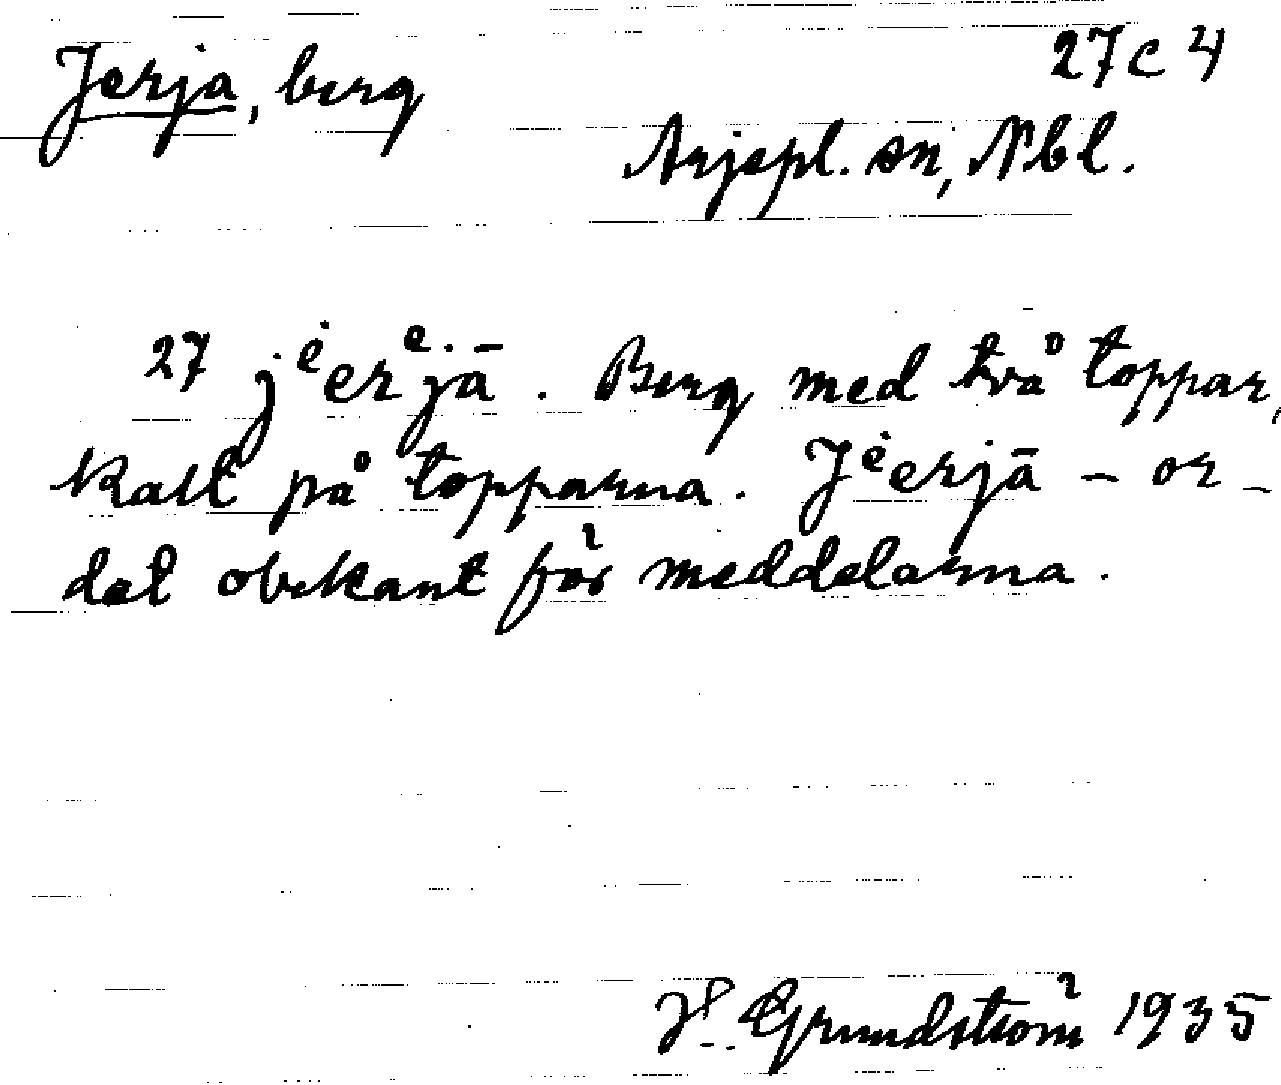 Jerja, berg
27 C 4
Arjepl. sn, Nbl.
27 jėerᵉjā. Berg med två toppar,
kalt på topparna. Jėerjā – or-
det obekant för meddelarna.
H. Grundström 1935